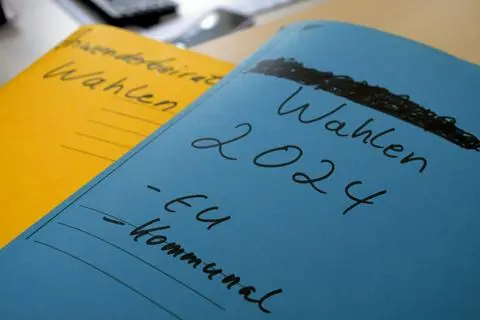 Wahlen
Wahlen
2024
- EU
- Kommunal